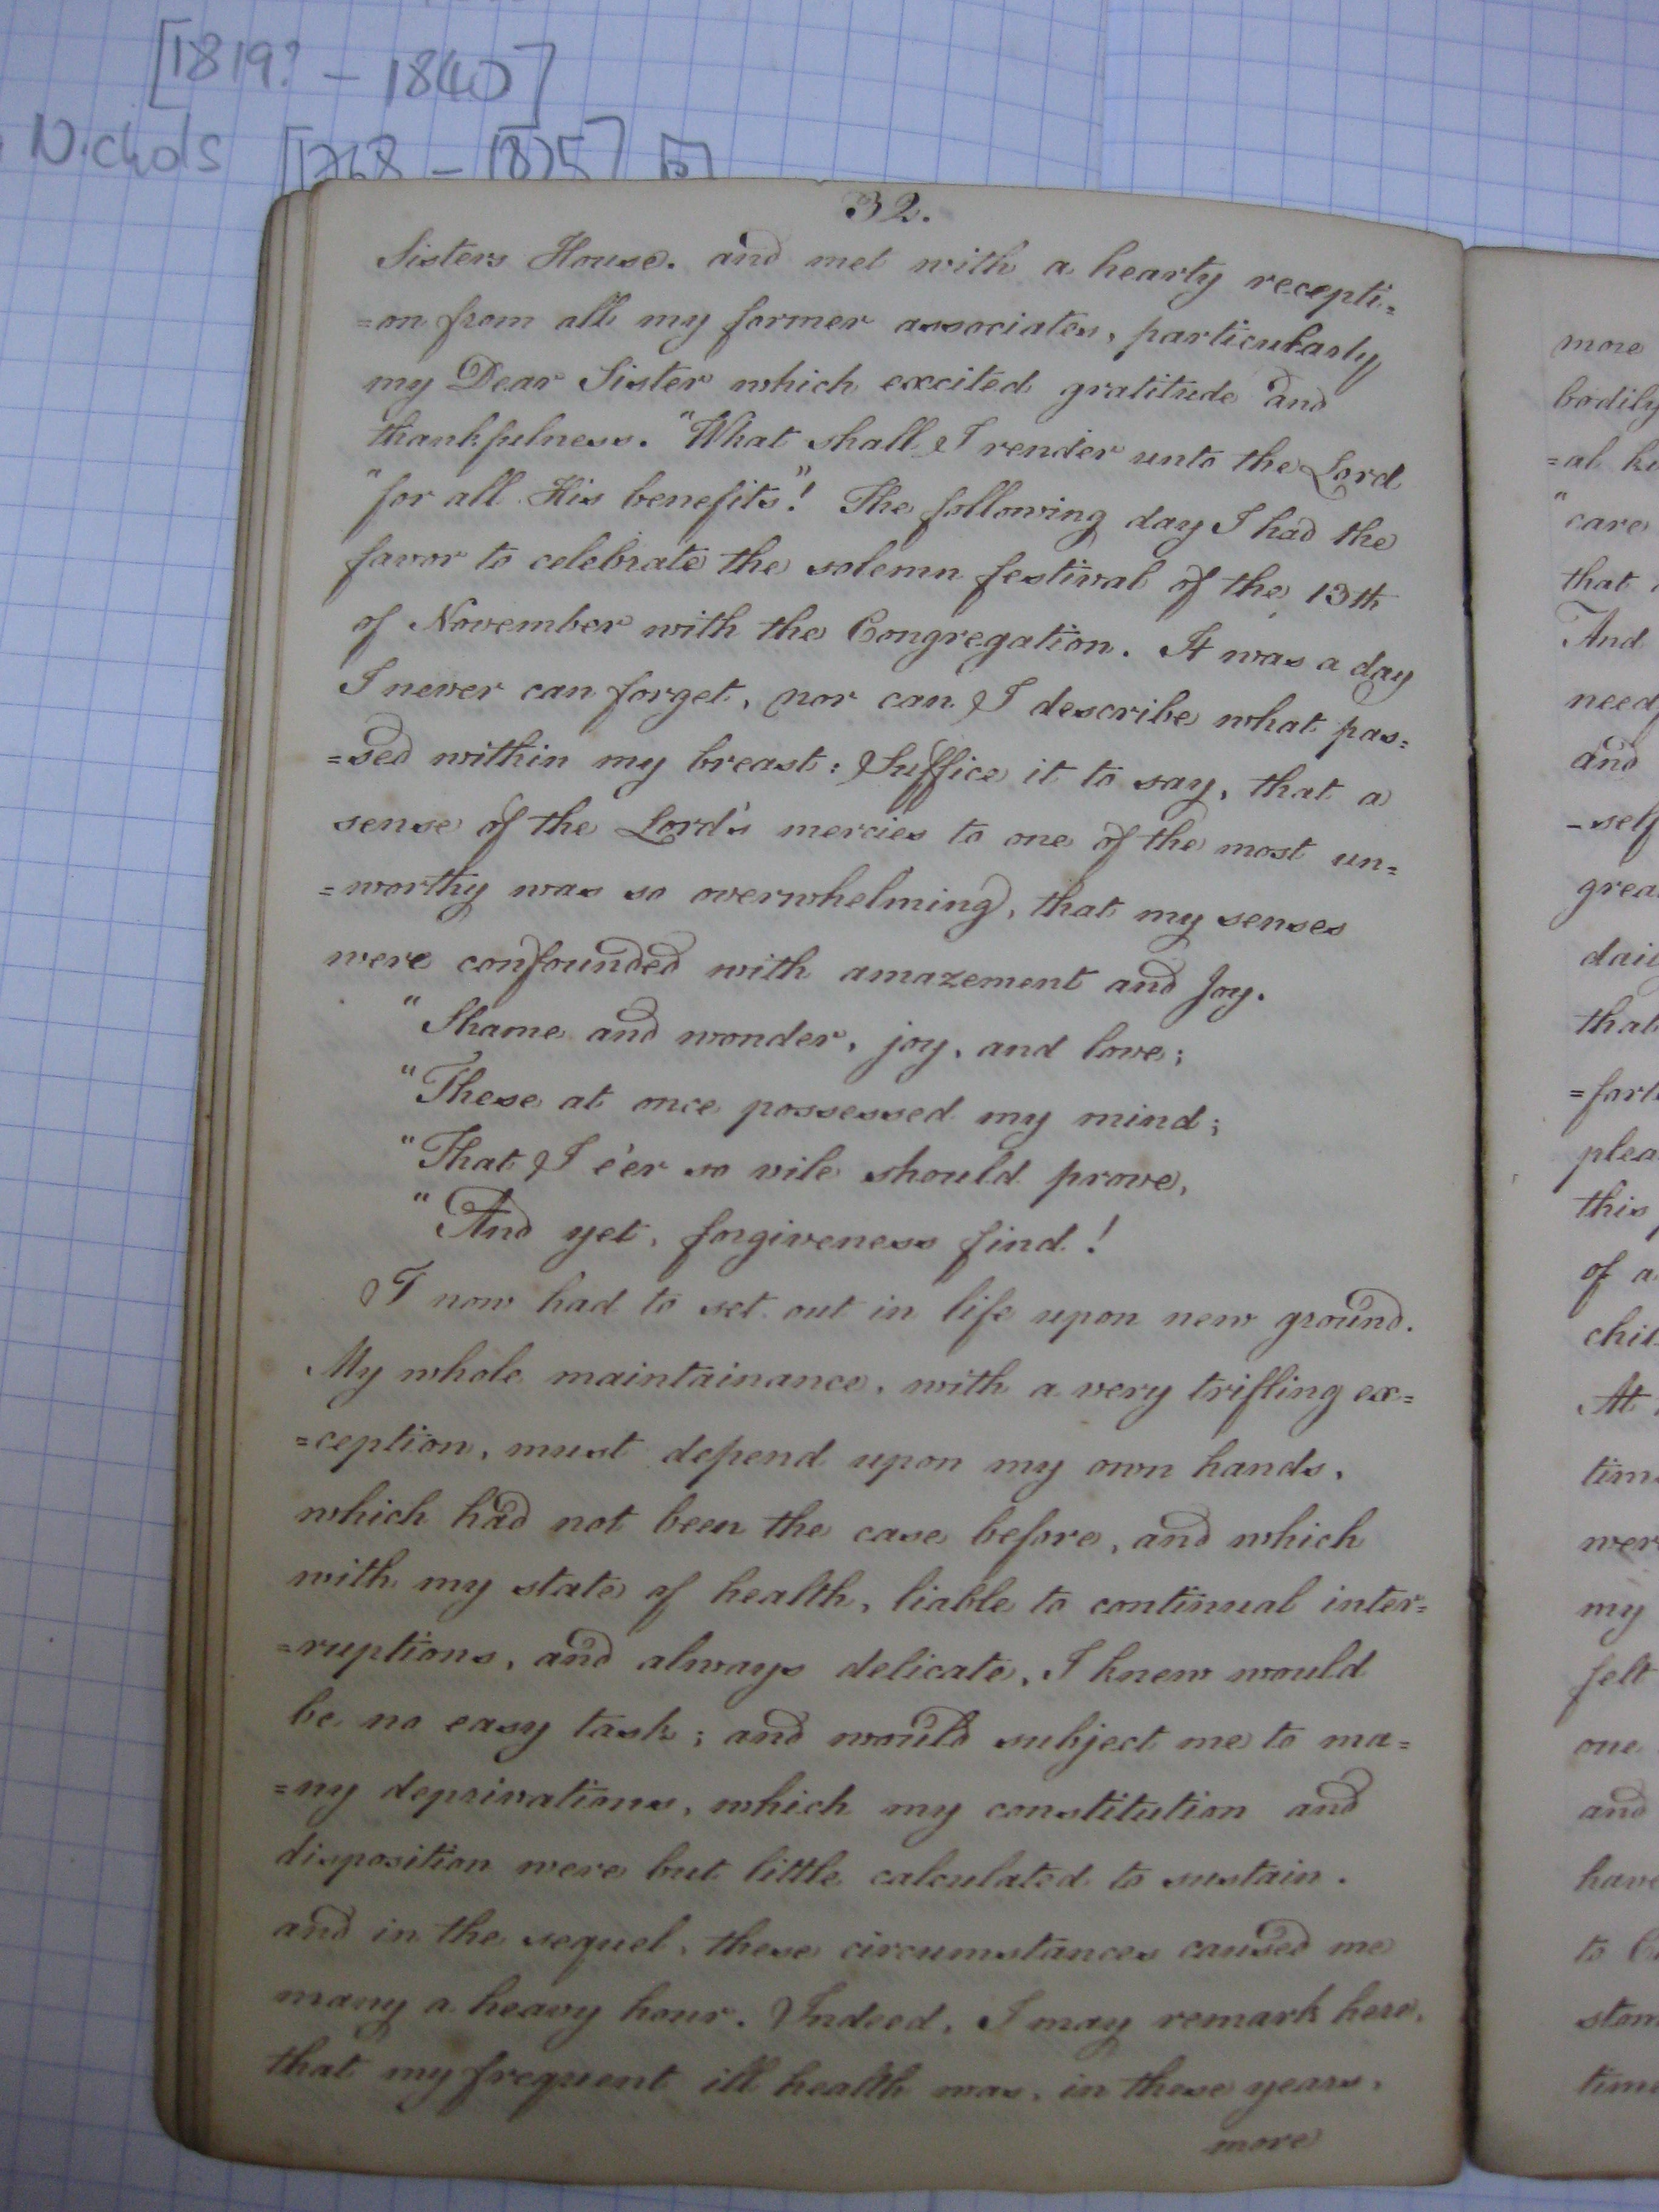 [1819? - 1840]
Nichols [1768 - 1825]
32.
Sisters House. and met with a hearty recepti=
=on from all my former associates, particularly
my Dear Sister which excited gratitude and
thankfulness. "What shall I render unto the Lord
"for all His benefits"! The following day I had the
favor to celebrate the solemn festival of the 13th
of November with the Congregation. It was a day
I never can forget, nor can I describe what pas=
=sed within my breast: Suffice it to say, that a
sense of the Lord's mercies to one of the most un=
=worthy was so overwhelming, that my senses
were confounded with amazement and Joy.
"Shame and wonder, joy, and love;
"These at once possessed my mind;
"That I e'er so vile should prove,
"And yet, forgiveness find!
I now had to set out in life upon new ground.
My whole maintainance, with a very trifling ex=
=ception, must depend upon my own hands,
which had not been the case before, and which
with my state of health, liable to continual inter=
=ruptions, and always delicate, I knew would
be no easy task; and would subject me to ma=
=ny deprivations, which my constitution and
disposition were but little calculated to sustain.
and in the sequel, these circumstances caused me
many a heavy hour. Indeed, I may remark here,
that my frequent ill health was, in these years,
more
more
bodily
=al
"care
that
And
need
and
-self
grea
dai
that
=fort
plea
this
of a
chil
At
time
wer
my
felt
one
and
have
to
stom
time